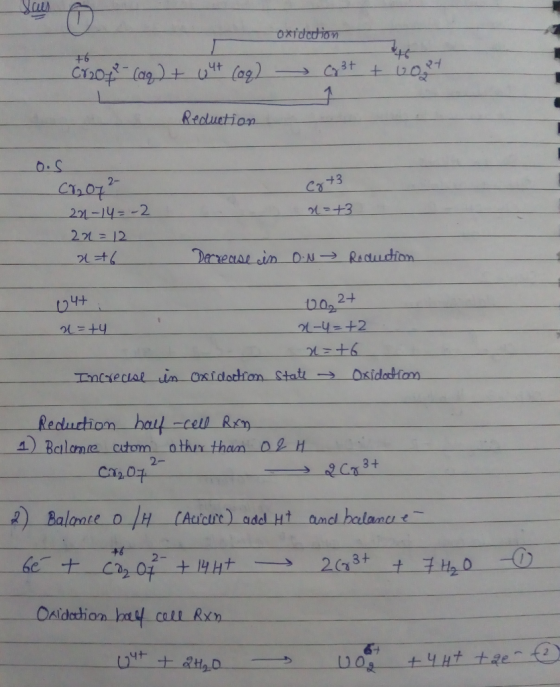 ①
oxidation
+6 +6
Cr2O7²⁻ (aq) + U⁴⁺ (aq) ⟶ Cr³⁺ + UO₂²⁺
Reduction
O.S
Cr2O7²⁻ Cr⁺³
2x-14=-2 x=+3
2x=12
x=+6 Decrease in O.N → Reduction
U⁴⁺ UO₂²⁺
x=+4 x-4=+2
x=+6
Increase in oxidation state → Oxidation
Reduction half-cell Rxn
1) Balance atom other than O & H
Cr2O7²⁻ ⟶ 2Cr³⁺
2) Balance O/H (Acidic) add H⁺ and balance e⁻
+6
6e⁻ + Cr2O7²⁻ + 14H⁺ ⟶ 2Cr³⁺ + 7H₂O —①
Oxidation half cell Rxn
U⁴⁺ + 2H₂O ⟶ UO₂⁶⁺ + 4H⁺ + 2e⁻ —②